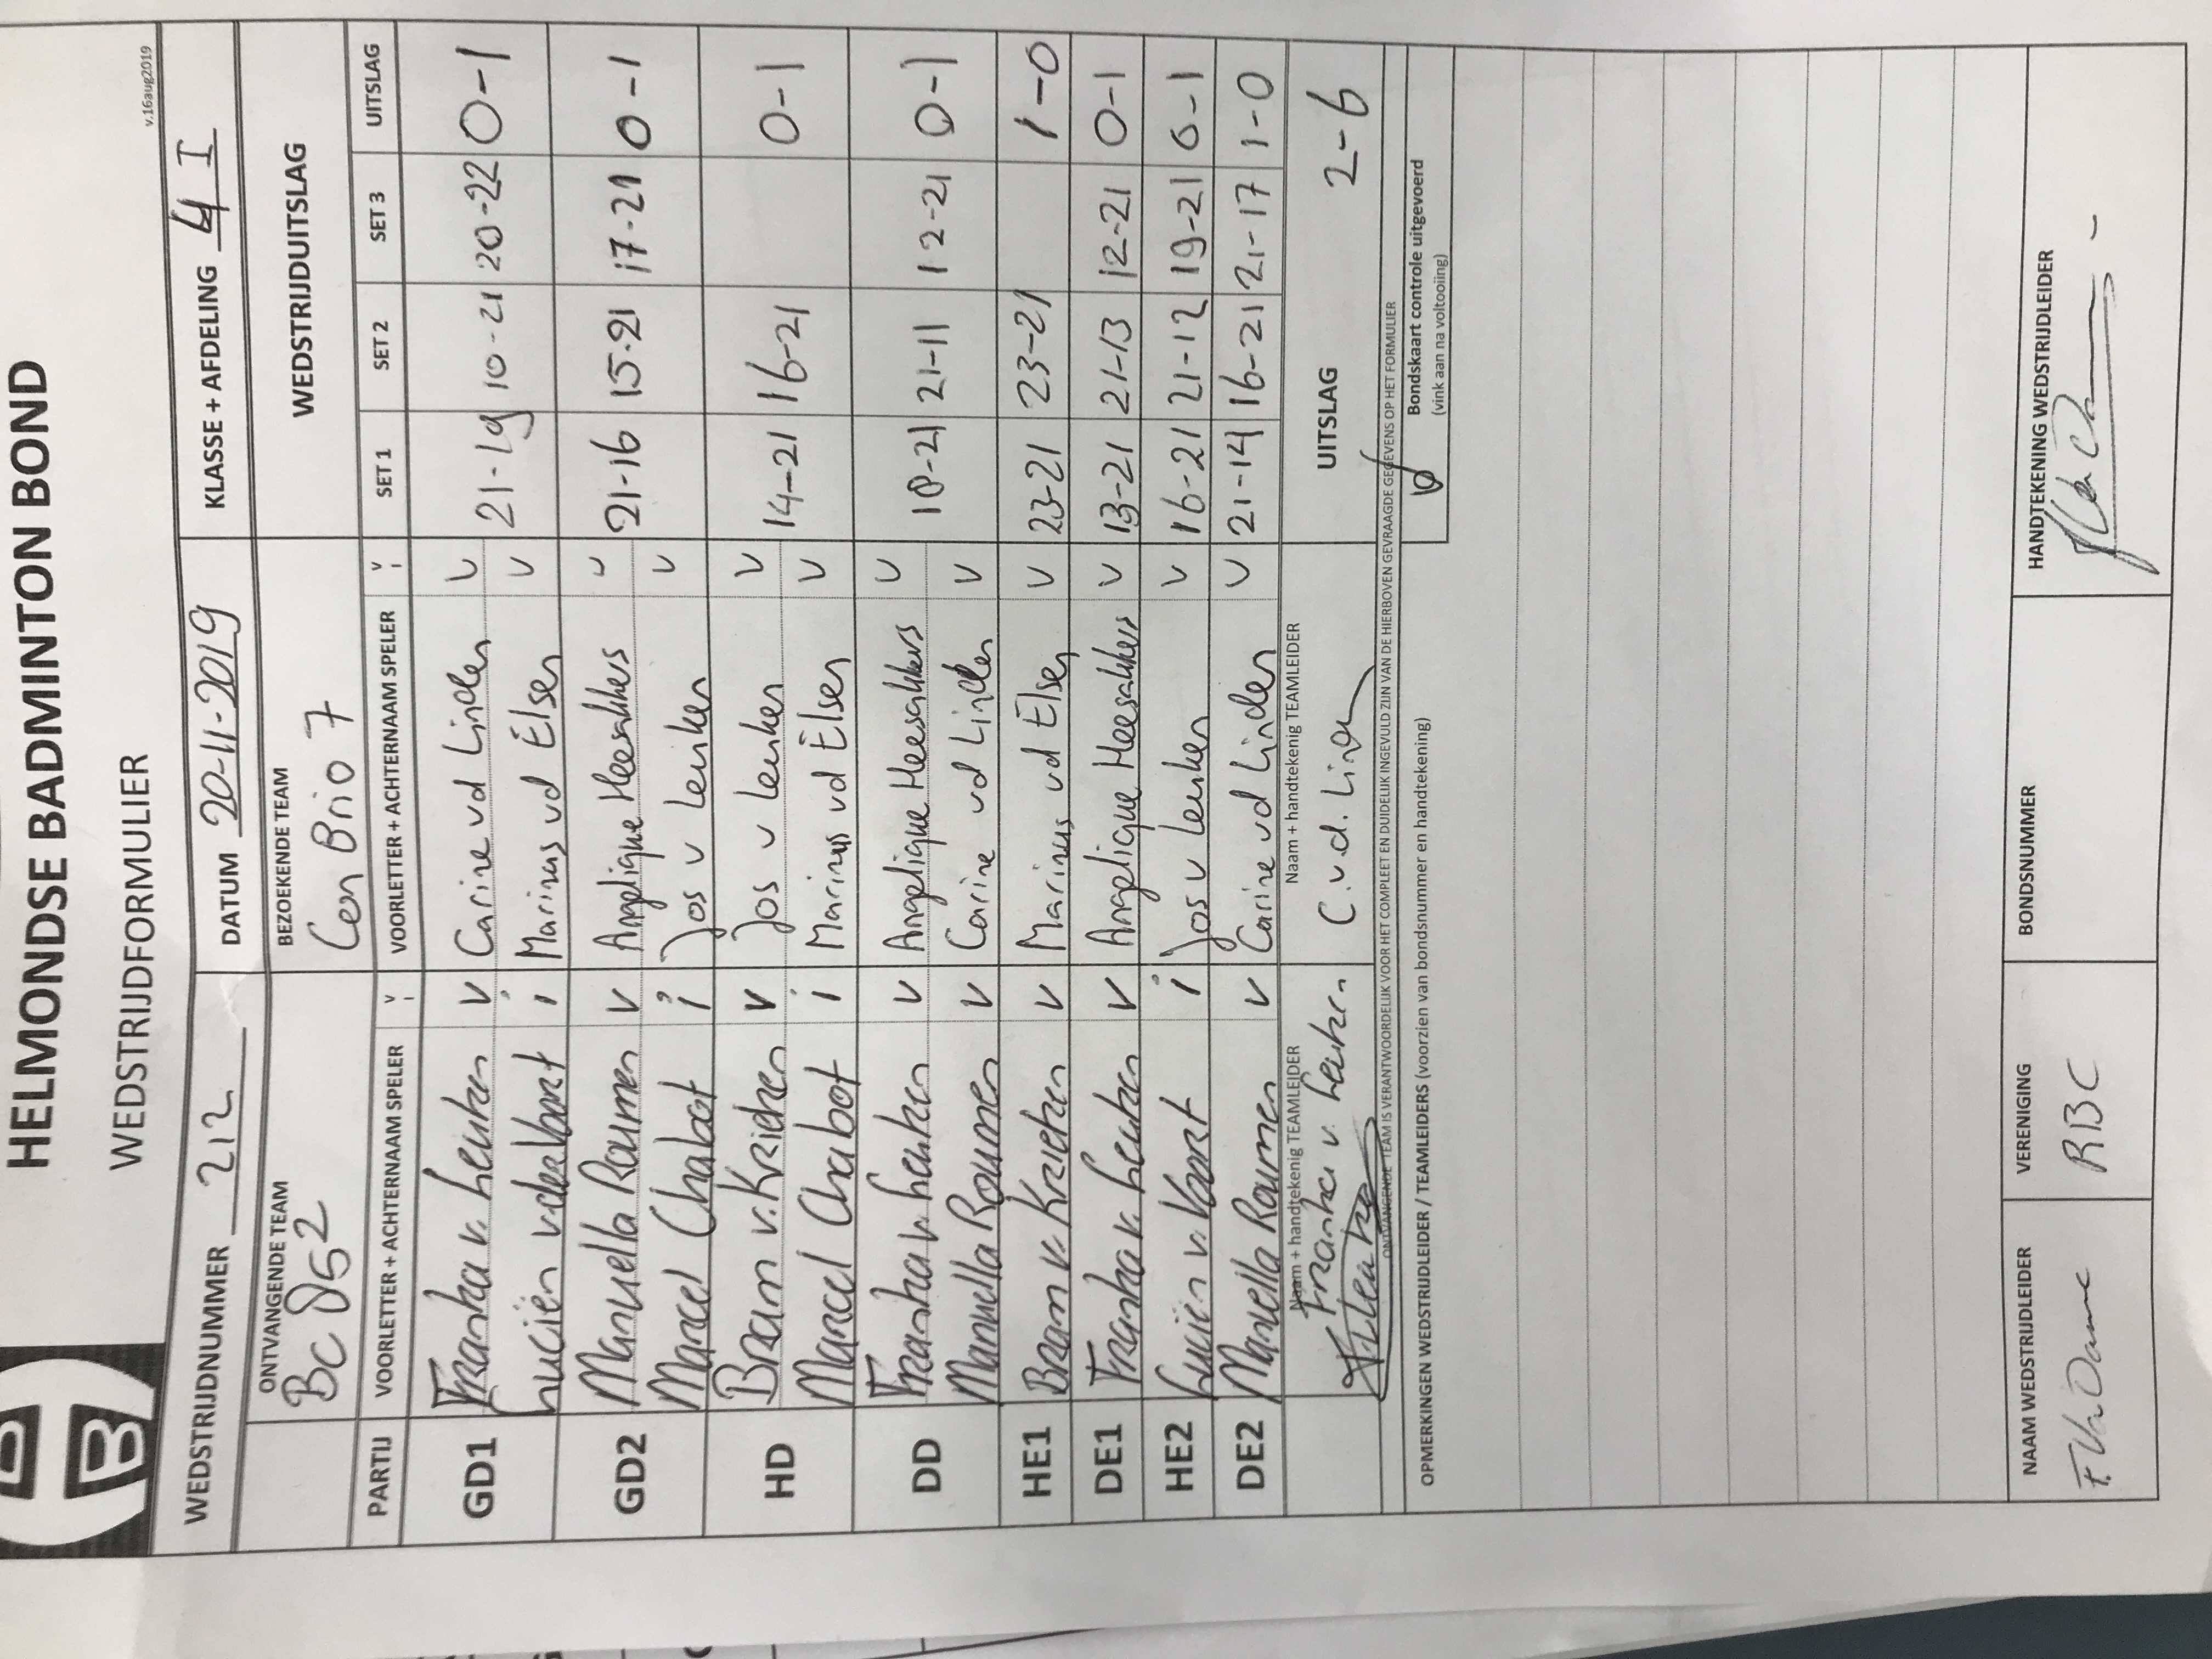 HELMONDSE BADMINTON BOND
WEDSTRIJDFORMULIER
v.16aug2019
WEDSTRIJDNUMMER 212 DATUM 20-11-2019 KLASSE + AFDELING 4 I
ONTVANGENDE TEAM BEZOEKENDE TEAM WEDSTRIJDUITSLAG
BC DS2 Con Brio 7
PARTIJ VOORLETTER + ACHTERNAAM SPELER V I VOORLETTER + ACHTERNAAM SPELER V I SET 1 SET 2 SET 3 UITSLAG
GD1 Franka v. Leuken v Carine vd Linden v 21-19 10-21 20-22 0-1
Luciën v. der Voort i Marinus vd Elsen v
GD2 Manuella Roumen v Angelique Heesakkers v 21-16 15-21 17-21 0-1
Marcel Chabot i Jos v Leuken v
HD Bram v. Krieken v Jos v Leuken v 14-21 16-21 0-1
Marcel Chabot i Marinus vd Elsen v
DD Franka v. Leuken v Angelique Heesakkers v 18-21 21-11 12-21 0-1
Manuella Roumen v Carine vd Linden v
HE1 Bram v. Krieken v Marinus vd Elsen v 23-21 23-21 1-0
DE1 Franka v. Leuken v Angelique Heesakkers v 13-21 21-13 12-21 0-1
HE2 Luciën v. Voort i Jos v Leuken v 16-21 21-12 19-21 0-1
DE2 Manuella Roumen v Carine vd Linden v 21-14 16-21 21-17 1-0
Naam + handtekenig TEAMLEIDER Naam + handtekenig TEAMLEIDER UITSLAG 2-6
Franka v. Leuken C. v.d. Linden
ONTVANGENDE TEAM IS VERANTWOORDELIJK VOOR HET COMPLEET EN DUIDELIJK INGEVULD ZIJN VAN DE HIERBOVEN GEVRAAGDE GEGEVENS OP HET FORMULIER
OPMERKINGEN WEDSTRIJDLEIDER / TEAMLEIDERS (voorzien van bondsnummer en handtekening)
Bondskaart controle uitgevoerd
(vink aan na voltooiing)
NAAM WEDSTRIJDLEIDER VERENIGING BONDSNUMMER HANDTEKENING WEDSTRIJDLEIDER
RBC